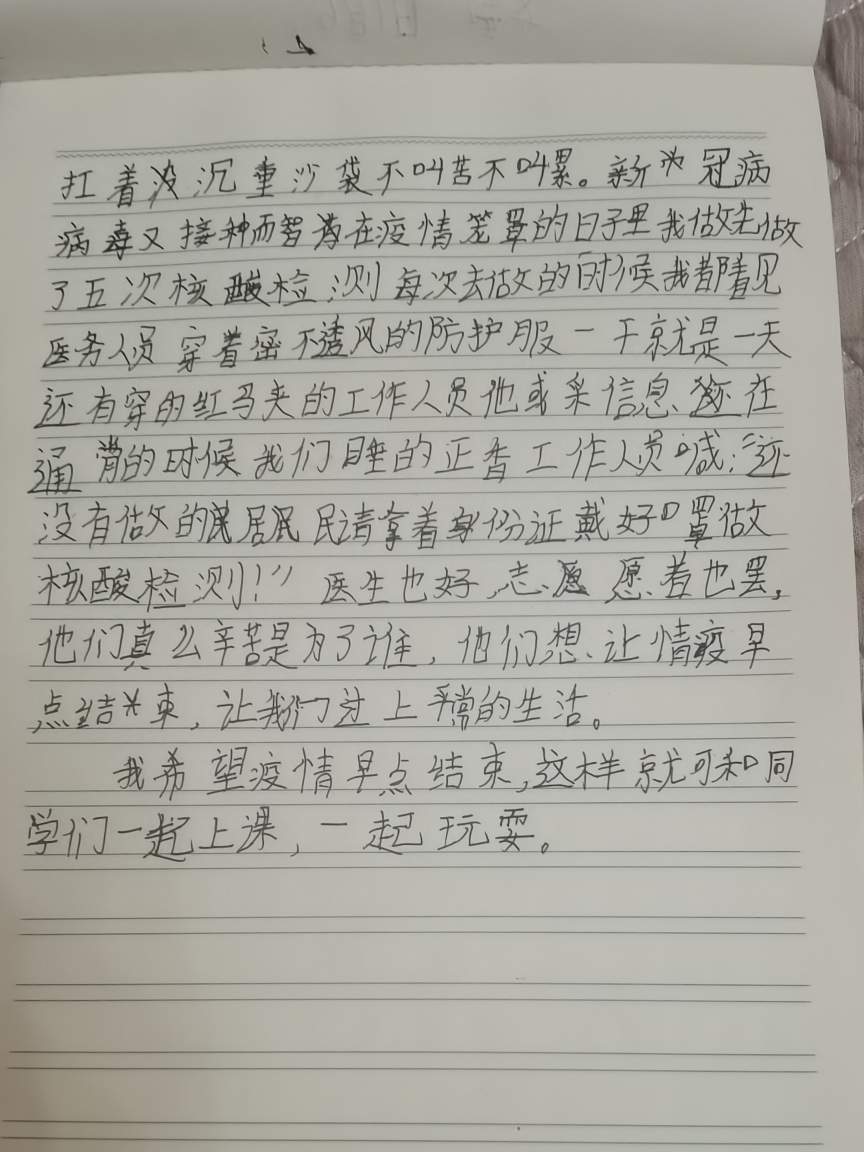 扛着沉重沙袋不叫苦不叫累。新冠病
病毒又接种而智为在疫情笼罩的日子里我做先做
了五次核酸检测每次去做的时候我都看见
医务人员穿着密不透风的防护服一干就是一天
还有穿的红马夹的工作人员他或采信息、还在
通常的时候我们睡的正香工作人员喊:“还
没有做的居民请拿着身份证戴好口罩做
核酸检测!”医生也好,志愿者也罢,
他们真么辛苦是为了谁,他们想让情疫早
点结束,让我们过上平常的生活。
我希望疫情早点结束,这样就可和同
学们一起上课,一起玩耍。